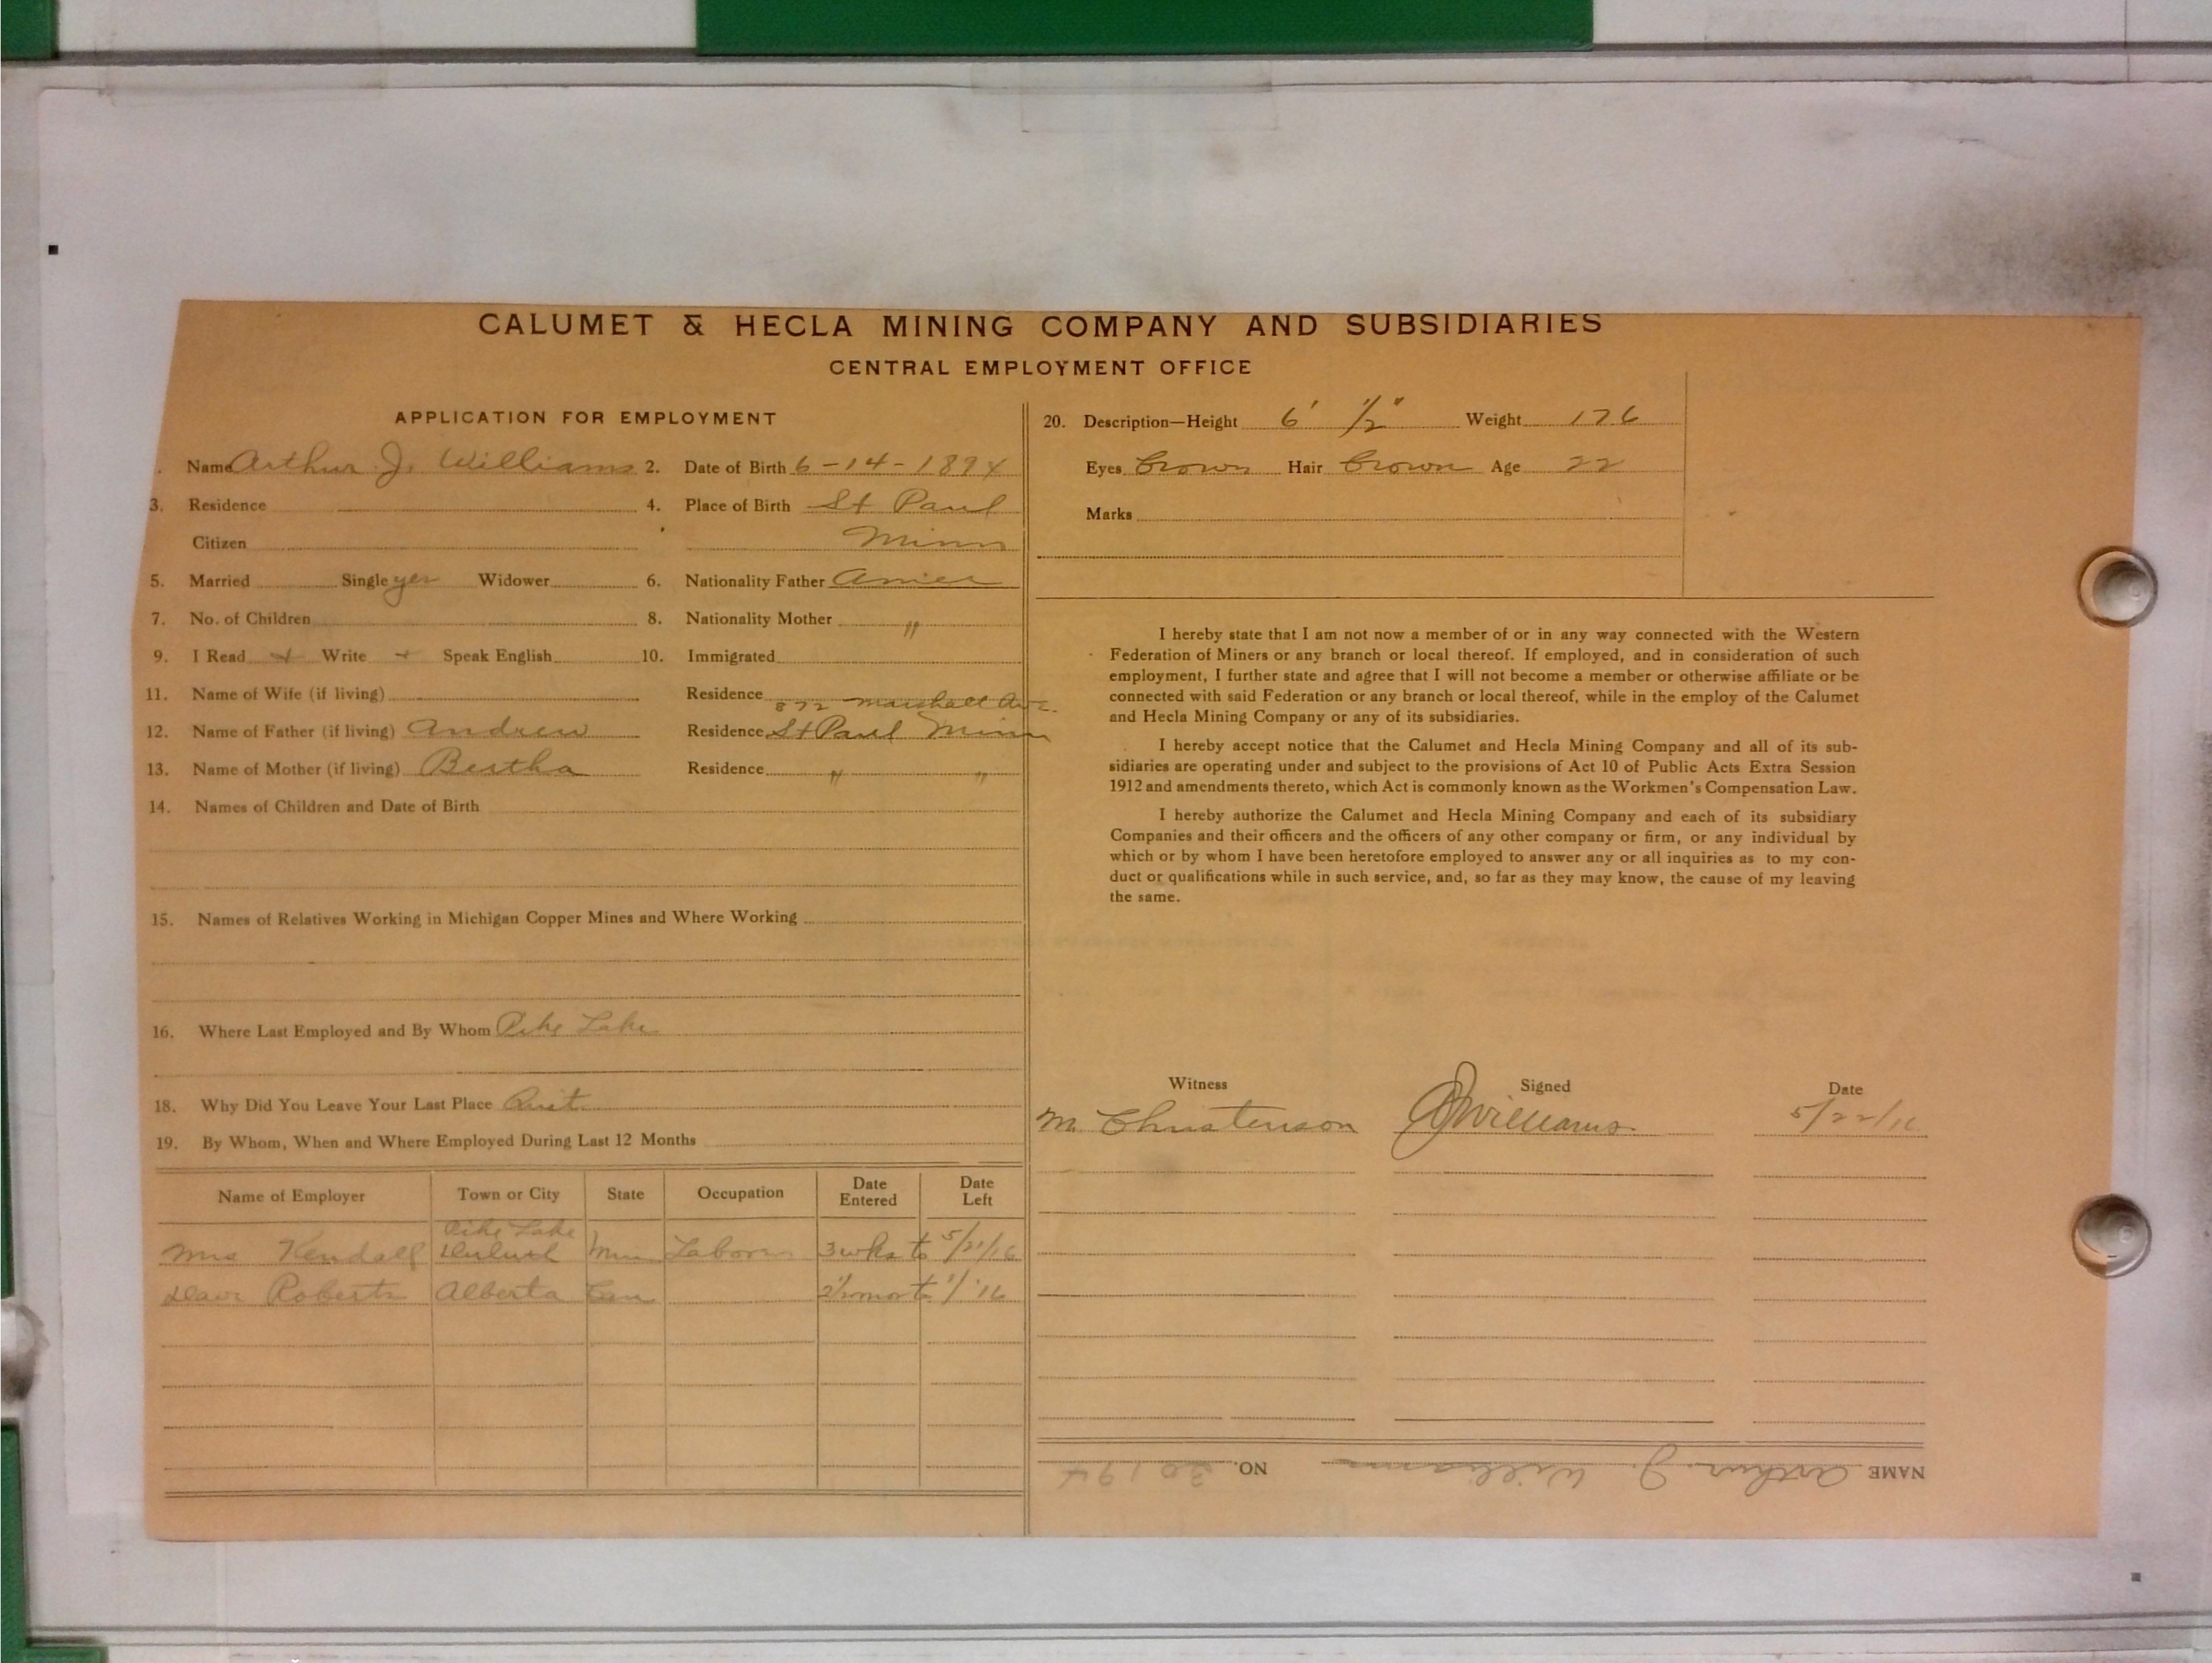 CALUMET & HECLA MINING COMPANY AND SUBSIDIARIES
CENTRAL EMPLOYMENT OFFICE
APPLICATION FOR EMPLOYMENT
. Name Arthur J. Williams 2. Date of Birth 6-14-1894
3. Residence 4. Place of Birth St Paul
Citizen Minn
5. Married Single yes Widower 6. Nationality Father Amer
7. No. of Children 8. Nationality Mother "
9. I Read + Write + Speak English 10. Immigrated
11. Name of Wife (if living) Residence
872 Marshall Ave.
12. Name of Father (if living) Andrew Residence St Paul Minn
13. Name of Mother (if living) Bertha Residence " "
14. Names of Children and Date of Birth
15. Names of Relatives Working in Michigan Copper Mines and Where Working
16. Where Last Employed and By Whom Pike Lake
18. Why Did You Leave Your Last Place Quit
19. By Whom, When and Where Employed During Last 12 Months
Name of Employer Town or City State Occupation Date Entered Date Left
Pike Lake
Mrs Kendall Duluth Minn Labor 3 wks to 5/21/16
Dave Roberts Alberta Can 2½ mos to 1/1/16
20. Description—Height 6' ½" Weight 176
Eyes Brown Hair Brown Age 22
Marks
I hereby state that I am not now a member of or in any way connected with the Western
Federation of Miners or any branch or local thereof. If employed, and in consideration of such
employment, I further state and agree that I will not become a member or otherwise affiliate or be
connected with said Federation or any branch or local thereof, while in the employ of the Calumet
and Hecla Mining Company or any of its subsidiaries.
I hereby accept notice that the Calumet and Hecla Mining Company and all of its sub-
sidiaries are operating under and subject to the provisions of Act 10 of Public Acts Extra Session
1912 and amendments thereto, which Act is commonly known as the Workmen's Compensation Law.
I hereby authorize the Calumet and Hecla Mining Company and each of its subsidiary
Companies and their officers and the officers of any other company or firm, or any individual by
which or by whom I have been heretofore employed to answer any or all inquiries as to my con-
duct or qualifications while in such service, and, so far as they may know, the cause of my leaving
the same.
Witness Signed Date
M. Christenson AJWilliams 5/22/16
NAME Arthur J. Williams NO. 30194